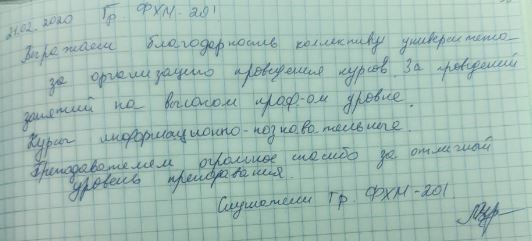 21.02.2020 Гр. ФХМ-201
Выражаем благодарность коллективу университета
за организацию проведения курсов. За проведений
занятий на высоком проф-ом уровне.
Курсы информационно-познавательные.
Преподавателям огромное спасибо за отличный
уровень преподавания.
Слушатели гр. ФХМ-201